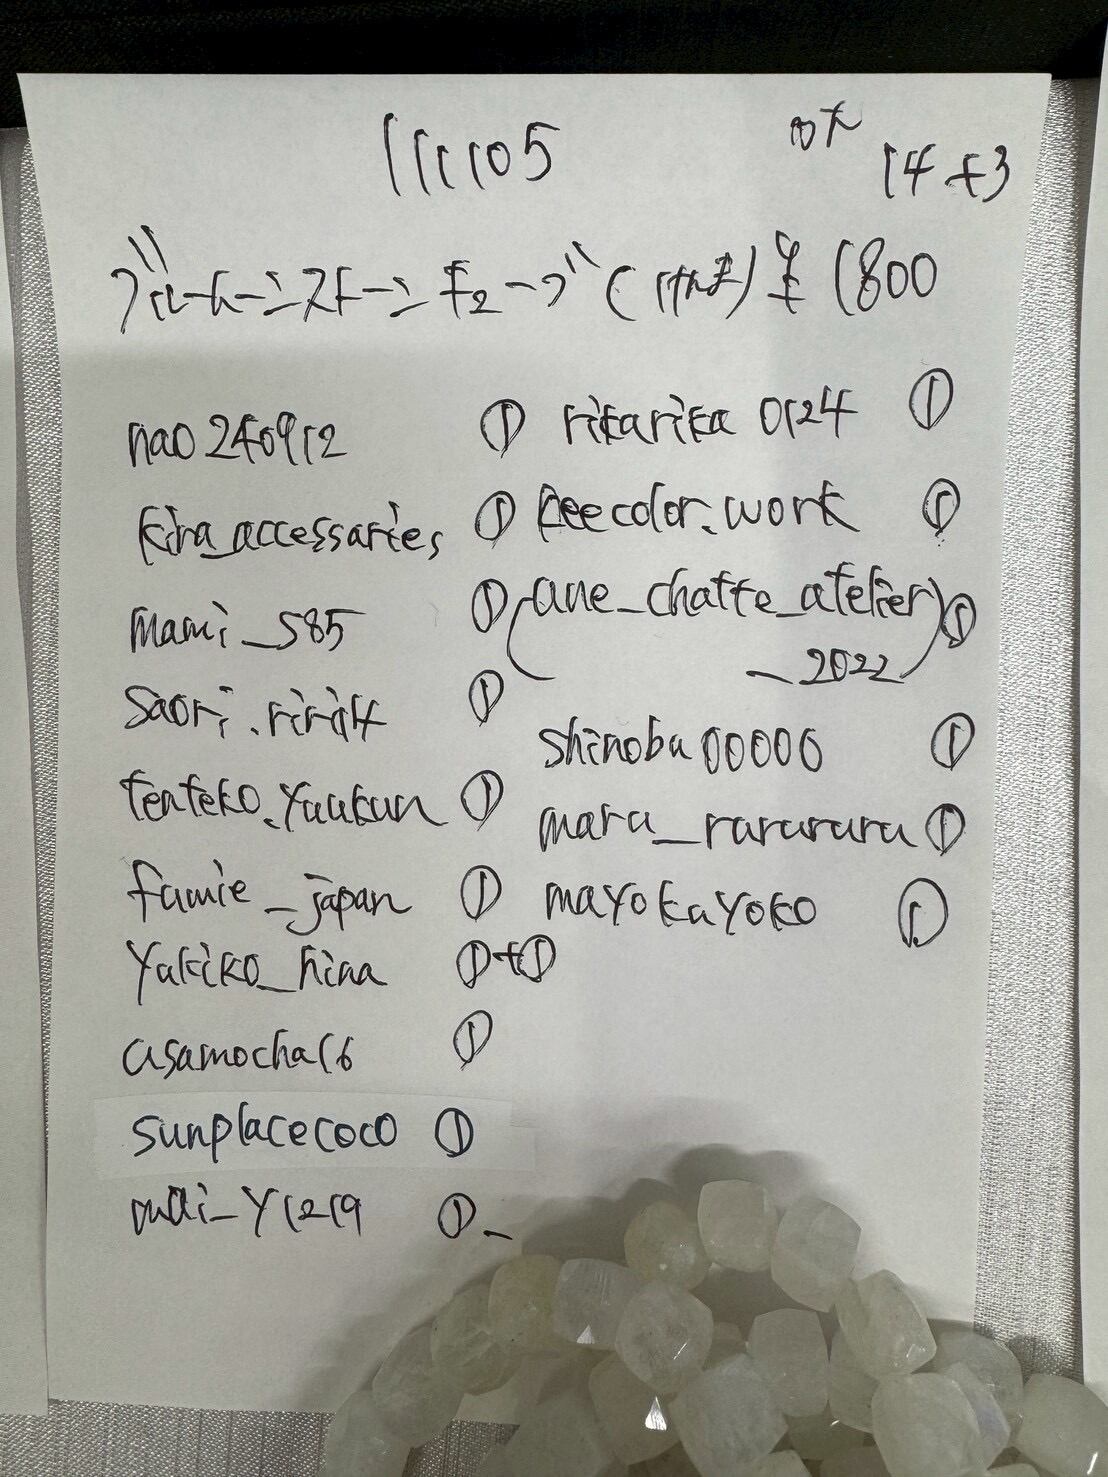 111105
14+3
ブルームーンストーンキューブ(1th±)¥1800
nao240912 ①
kira_accessaries ①
mami_585 ①
saori.riri14 ①
tenteko.yuukun ①
fumie_japan ①
yukiko_hina ①+①
asamocha16 ①
sunplacecoco ①
mai_y1219 ①
rikarika0124 ①
keecolor.work ①
(ane_chatte_atelier
_2022) ①
shinobu00000 ①
maru_rurururu ①
mayokayoko ①